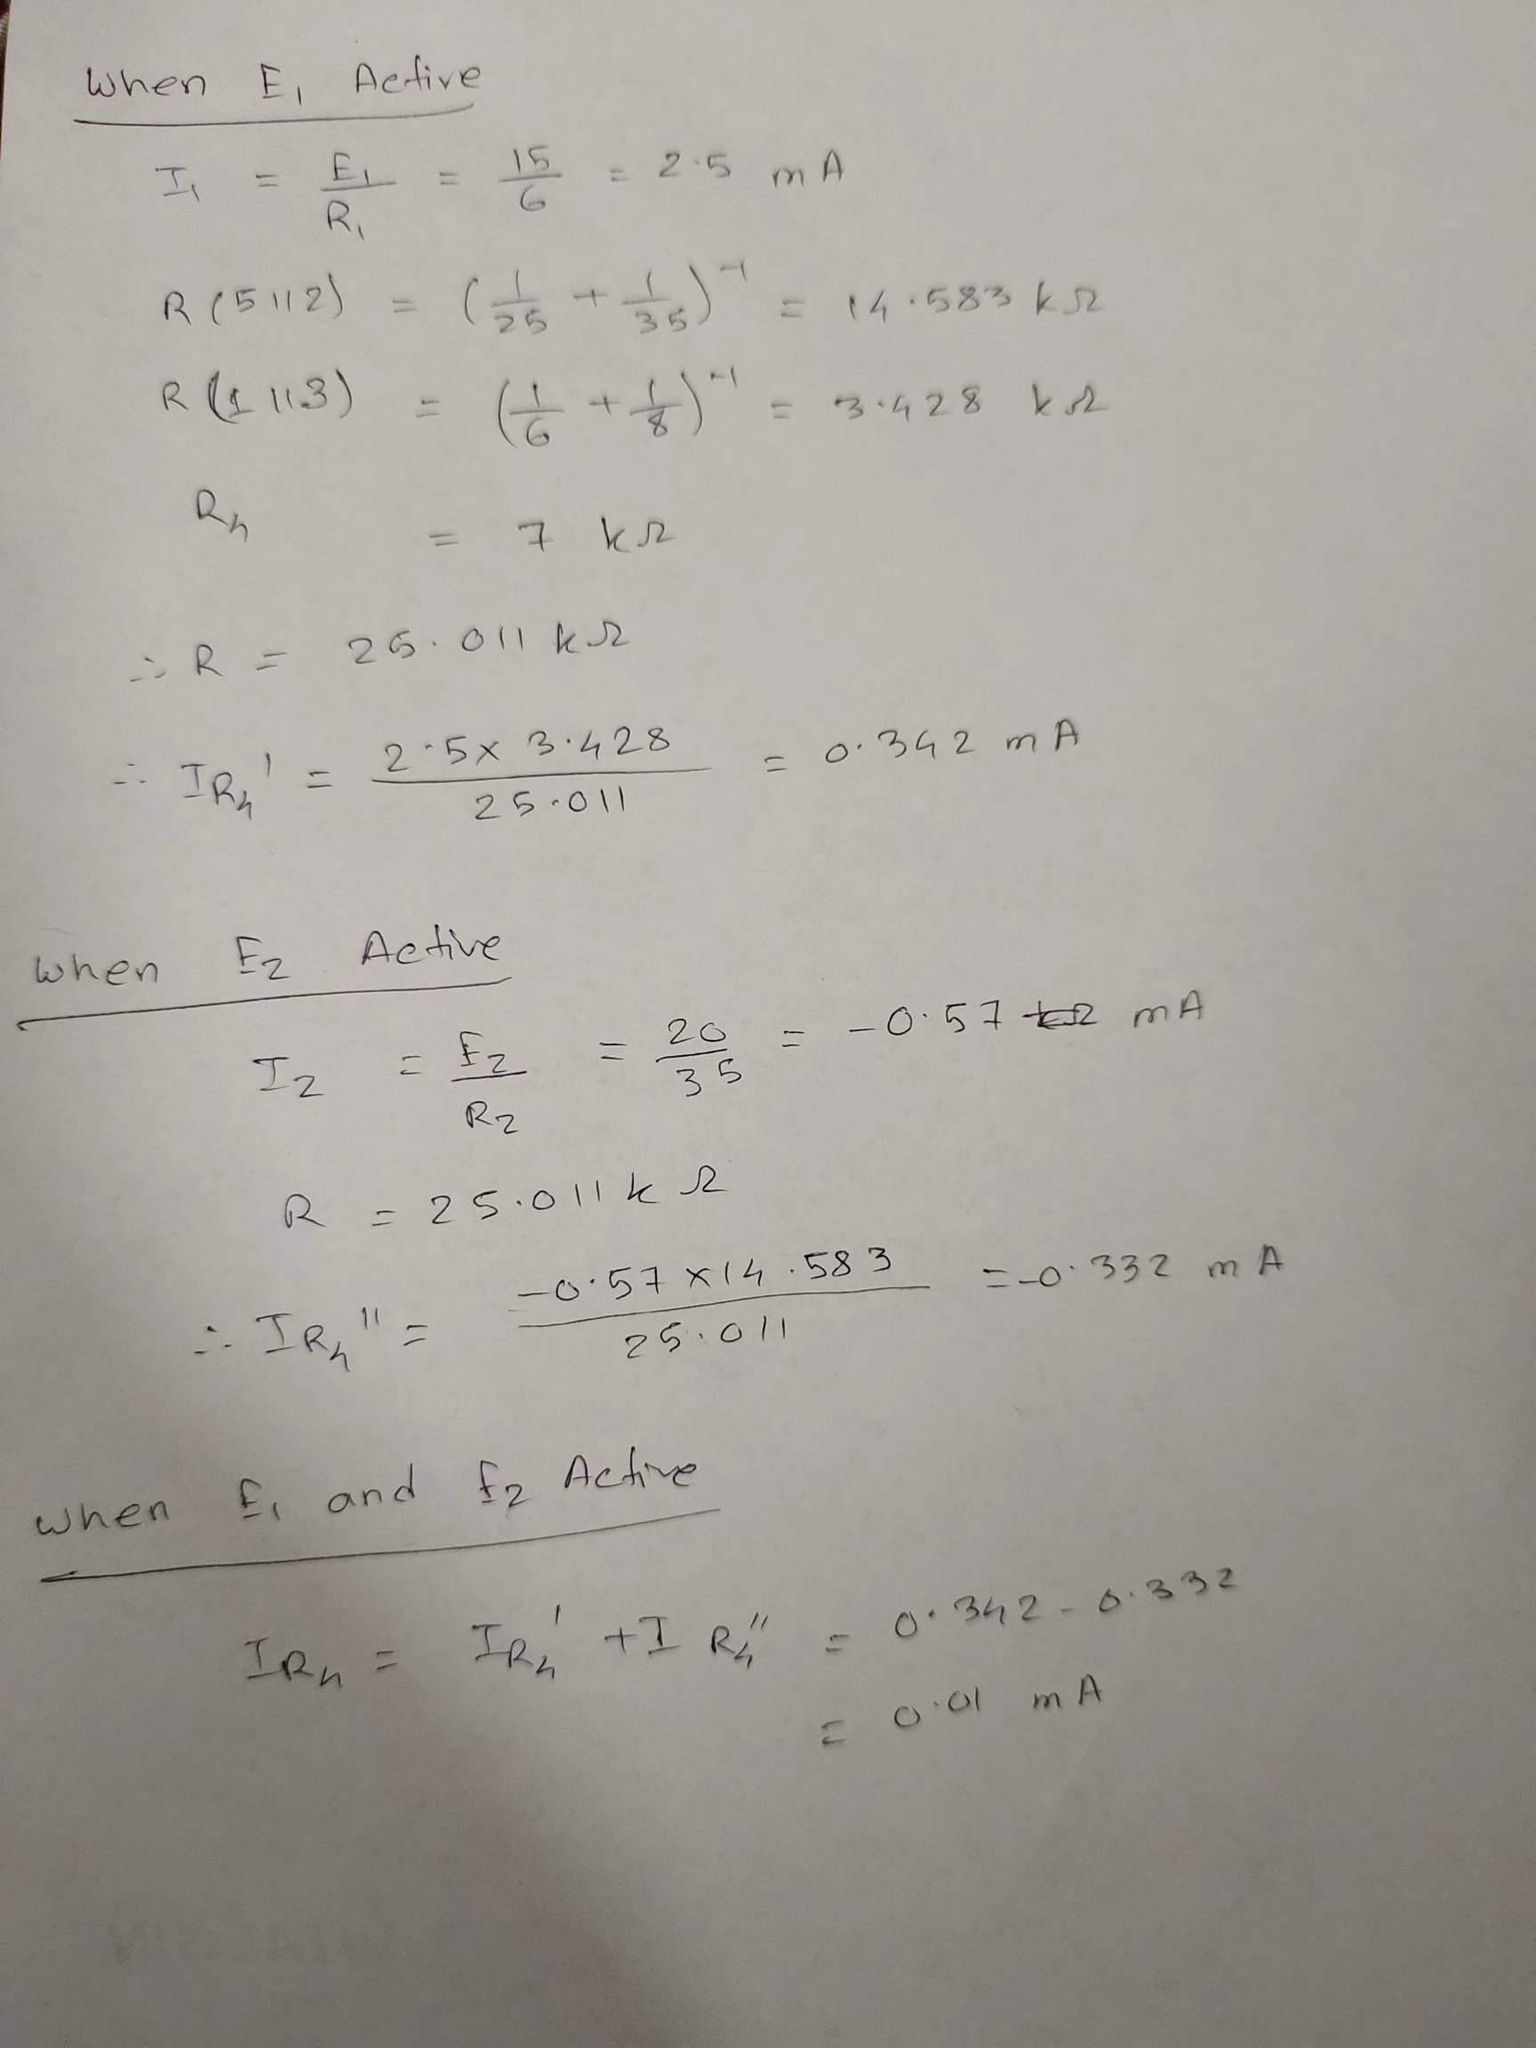 When E1 Active
I1 = E1/R1 = 15/6 = 2.5 mA
R (5 || 2) = (1/25 + 1/35)^-1 = 14.583 kΩ
R (1 || 3) = (1/6 + 1/8)^-1 = 3.428 kΩ
R4 = 7 kΩ
∴ R = 25.011 kΩ
∴ IR4' = 2.5 x 3.428 / 25.011 = 0.342 mA
When E2 Active
I2 = E2/R2 = 20/35 = -0.57 mA
R = 25.011 kΩ
∴ IR4'' = -0.57 x 14.583 / 25.011 = -0.332 mA
When E1 and E2 Active
IR4 = IR4' + I R4'' = 0.342 - 0.332
= 0.01 mA